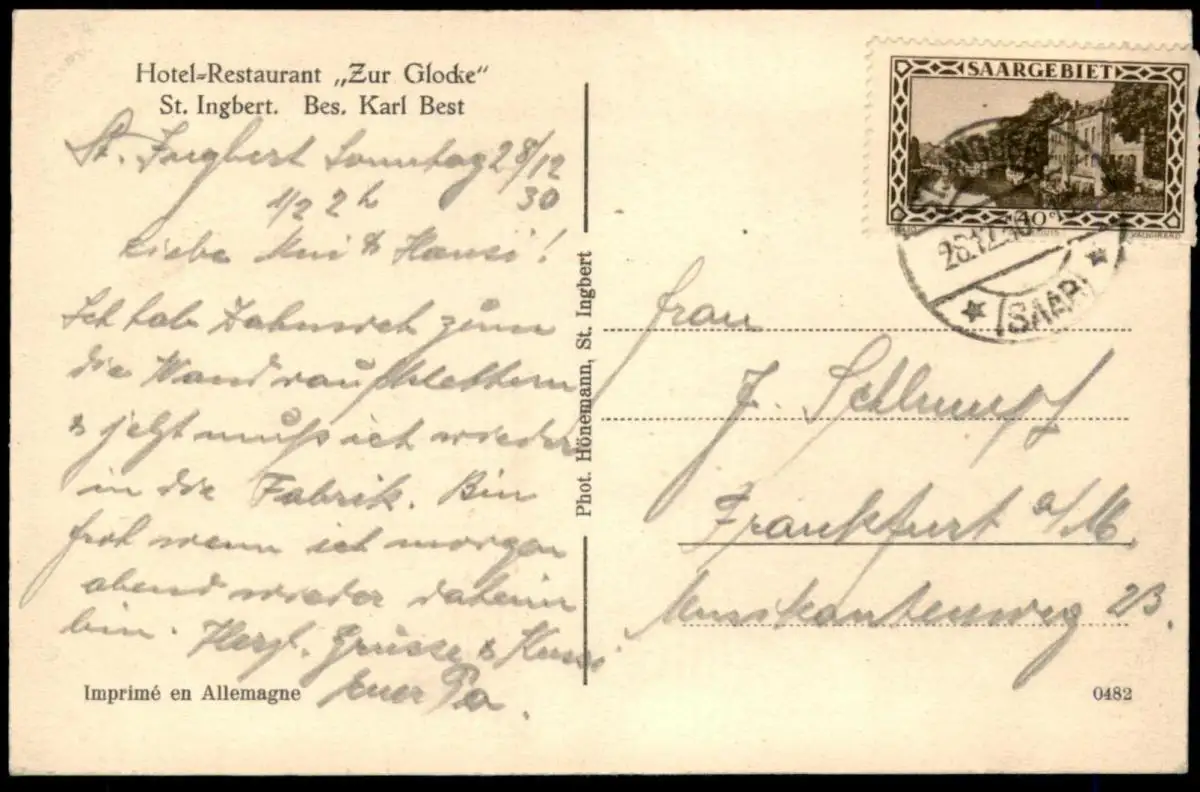 Hotel-Restaurant „Zur Glocke“
St. Ingbert. Bes. Karl Best
St. Ingbert Sonntag 28/12
1/2 2 h 30
Liebe & Hansi!
Ich hab Zahnweh zum
die Wand raufklettern
& jetzt muß ich wieder
in die Fabrik. Bin
froh wenn ich morgen
abend wieder daheim
bin. Herzl. Grüsse & Kuss
Euer Pa.
Imprimé en Allemagne
Phot. Hönemann, St. Ingbert
SAARGEBIET
40 c
28.12.30
(SAAR)
Frau
J. Schlumpf
Frankfurt a/M.
Musikantenweg 23.
0482